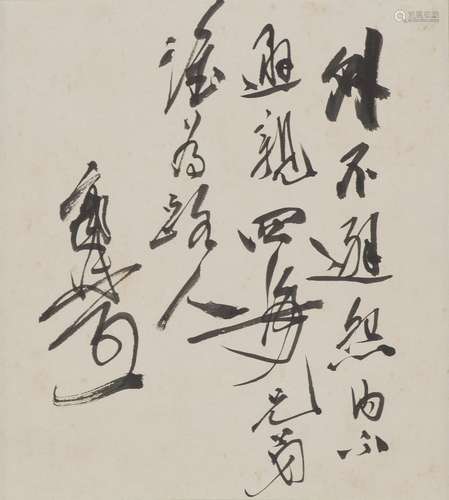 外不避怨内不
避親四海兄弟
誰為路人